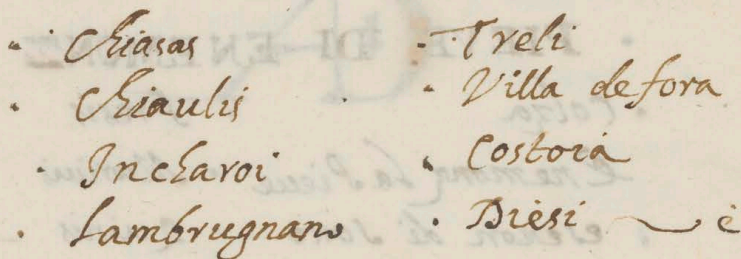 · Chiasas
· Chiaulis
· Incharoi
· Lambrugnano
· Treli
· Villa de fora
· Costoia
· Diesi è